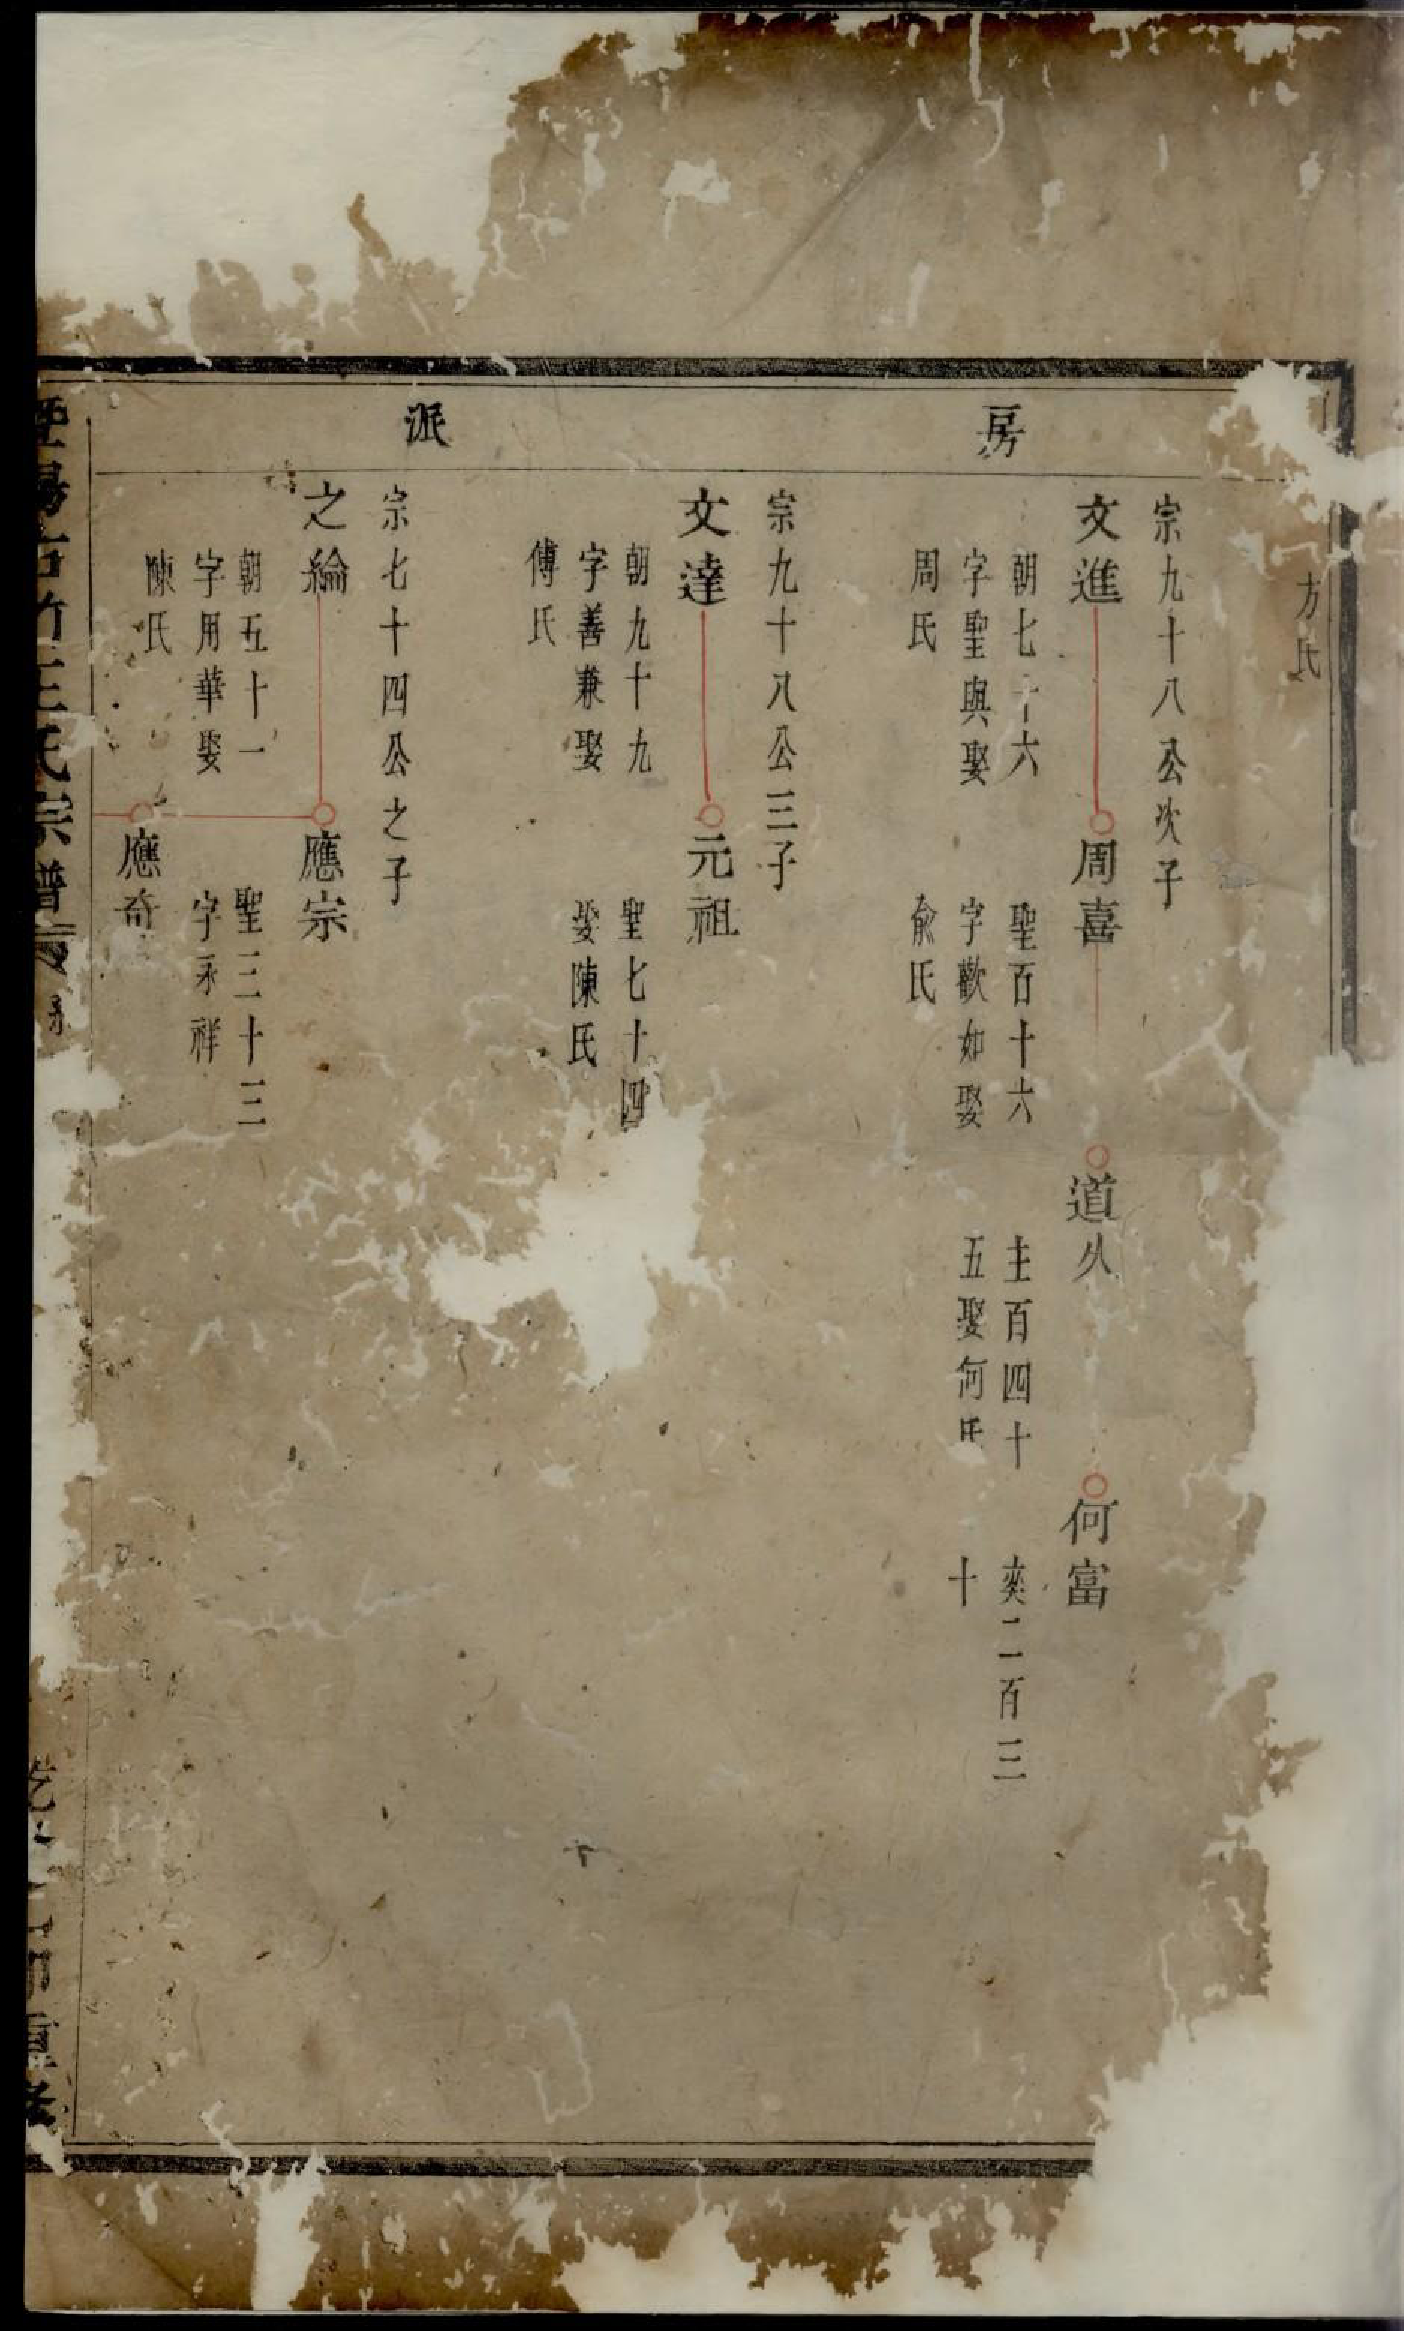 房
派
方氏
宗九十八公次子
文進
朝七十六
字聖與娶
周氏
周喜
聖百十六
字歡如娶
俞氏
道久
主百四十
五娶何氏
何富
奕二百三
十
宗九十八公三子
文達
朝九十九
字善兼娶
傅氏
元祖
聖七十四
娶陳氏
宗七十四公之子
之綸
朝五十一
字用華娶
陳氏
應宗
聖三十三
字永祥
應奇
王氏宗譜
重修